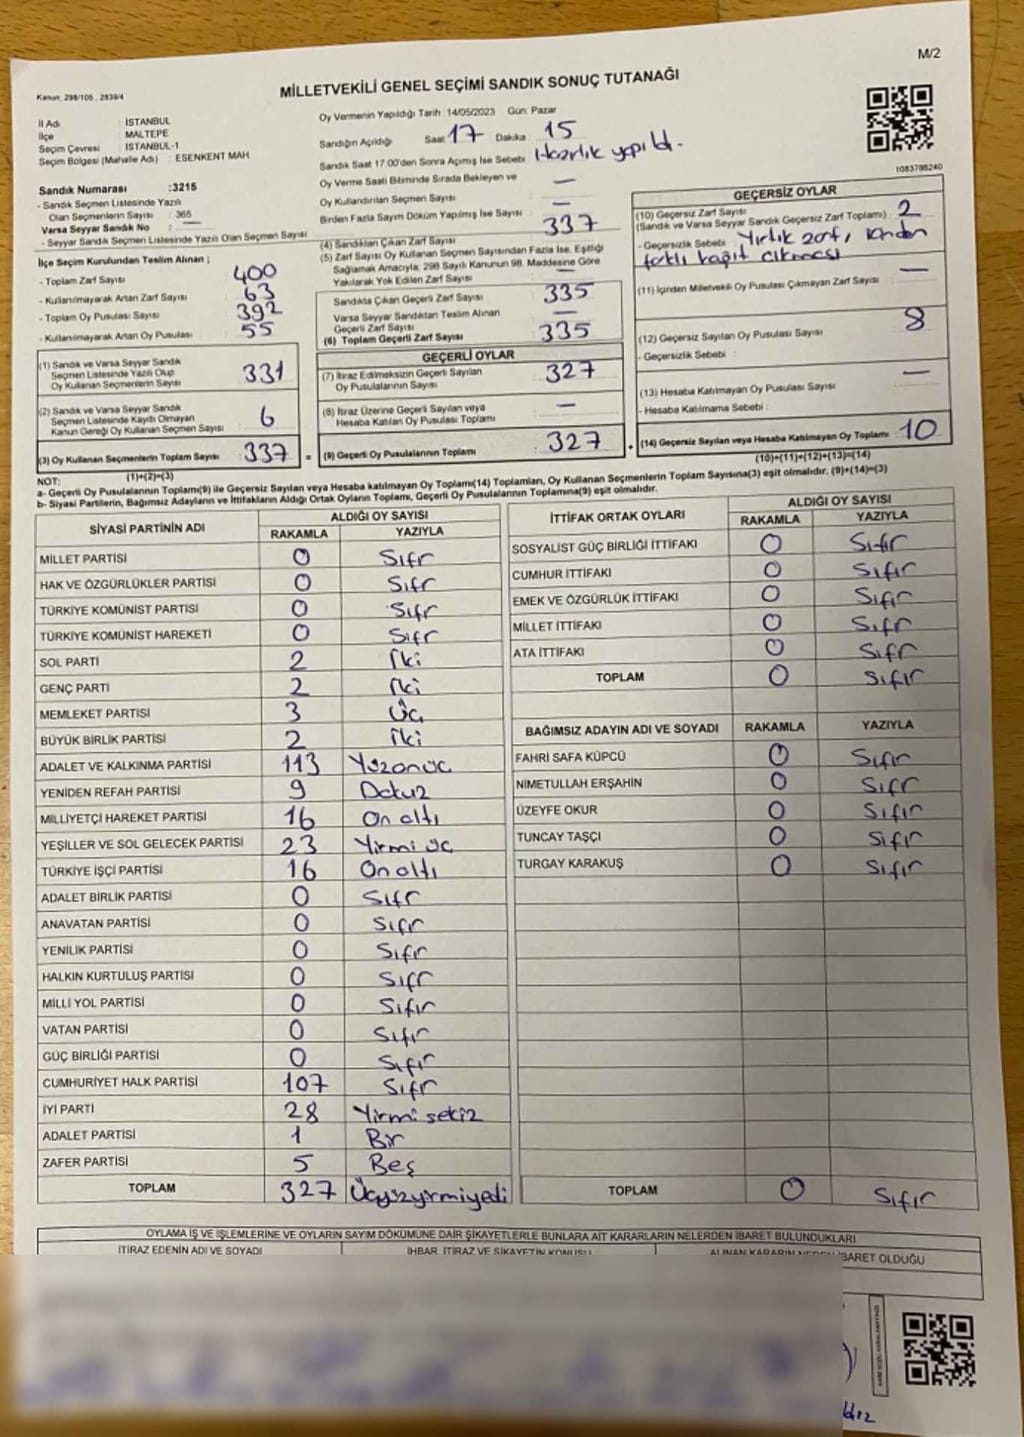 M/2
Kanun: 298/105 , 2839/4
MİLLETVEKİLİ GENEL SEÇİMİ SANDIK SONUÇ TUTANAĞI
İl Adı : İSTANBUL
İlçe : MALTEPE
Seçim Çevresi : İSTANBUL-1
Seçim Bölgesi (Mahalle Adı) : ESENKENT MAH
Sandık Numarası :3215
- Sandık Seçmen Listesinde Yazılı
Olan Seçmenlerin Sayısı : 365
Varsa Seyyar Sandık No : —
- Seyyar Sandık Seçmen Listesinde Yazılı Olan Seçmen Sayısı
İlçe Seçim Kurulundan Teslim Alınan ;
- Toplam Zarf Sayısı : 400
- Kullanılmayarak Artan Zarf Sayısı : 63
- Toplam Oy Pusulası Sayısı : 392
- Kullanılmayarak Artan Oy Pusulası : 55
(1) Sandık ve Varsa Seyyar Sandık
Seçmen Listesinde Yazılı Olup
Oy Kullanan Seçmenlerin Sayısı : 331
(2) Sandık ve Varsa Seyyar Sandık
Seçmen Listesinde Kayıtlı Olmayan
Kanun Gereği Oy Kullanan Seçmen Sayısı : 6
(3) Oy Kullanan Seçmenlerin Toplam Sayısı : 337
(1)+(2)=(3)
Oy Vermenin Yapıldığı Tarih :14/05/2023 Gün: Pazar
Sandığın Açıldığı Saat 17 Dakika : 15
Sandık Saat 17:00'den Sonra Açılmış İse Sebebi : Hazırlık yapıldı.
Oy Verme Saati Bitiminde Sırada Bekleyen ve
Oy Kullandırılan Seçmen Sayısı : —
Birden Fazla Sayım Döküm Yapılmış İse Sayısı : —
(4) Sandıktan Çıkan Zarf Sayısı 337
(5) Zarf Sayısı Oy Kullanan Seçmen Sayısından Fazla İse, Eşitliği
Sağlamak Amacıyla, 298 Sayılı Kanunun 98. Maddesine Göre
Yakılarak Yok Edilen Zarf Sayısı : —
Sandıkta Çıkan Geçerli Zarf Sayısı : 335
Varsa Seyyar Sandıktan Teslim Alınan
Geçerli Zarf Sayısı : —
(6) Toplam Geçerli Zarf Sayısı : 335
GEÇERLİ OYLAR
(7) İtiraz Edilmeksizin Geçerli Sayılan
Oy Pusulalarının Sayısı : 327
(8) İtiraz Üzerine Geçerli Sayılan veya
Hesaba Katılan Oy Pusulası Toplamı : —
= (9) Geçerli Oy Pusulalarının Toplamı : 327 +
1083786240
GEÇERSİZ OYLAR
(10) Geçersiz Zarf Sayısı
(Sandık ve Varsa Seyyar Sandık Geçersiz Zarf Toplamı) : 2
- Geçersizlik Sebebi : Yırtık zarf, içinden
farklı kağıt çıkması
(11) İçinden Milletvekili Oy Pusulası Çıkmayan Zarf Sayısı : —
(12) Geçersiz Sayılan Oy Pusulası Sayısı : 8
- Geçersizlik Sebebi :
(13) Hesaba Katılmayan Oy Pusulası Sayısı : —
- Hesaba Katılmama Sebebi :
(14) Geçersiz Sayılan veya Hesaba Katılmayan Oy Toplamı : 10
(10)+(11)+(12)+(13)=(14)
NOT:
a- Geçerli Oy Pusulalarının Toplamı(9) ile Geçersiz Sayılan veya Hesaba katılmayan Oy Toplamı(14) Toplamları, Oy Kullanan Seçmenlerin Toplam Sayısına(3) eşit olmalıdır. (9)+(14)=(3)
b- Siyasi Partilerin, Bağımsız Adayların ve İttifakların Aldığı Ortak Oyların Toplamı, Geçerli Oy Pusulalarının Toplamına(9) eşit olmalıdır.
SİYASİ PARTİNİN ADI ALDIĞI OY SAYISI
RAKAMLA YAZIYLA
MİLLET PARTİSİ 0 Sıfr
HAK VE ÖZGÜRLÜKLER PARTİSİ 0 Sıfr
TÜRKİYE KOMÜNİST PARTİSİ 0 Sıfr
TÜRKİYE KOMÜNİST HAREKETİ 0 Sıfr
SOL PARTİ 2 İki
GENÇ PARTİ 2 İki
MEMLEKET PARTİSİ 3 Üç
BÜYÜK BİRLİK PARTİSİ 2 İki
ADALET VE KALKINMA PARTİSİ 113 Yüzonüç
YENİDEN REFAH PARTİSİ 9 Dokuz
MİLLİYETÇİ HAREKET PARTİSİ 16 On altı
YEŞİLLER VE SOL GELECEK PARTİSİ 23 Yirmi üç
TÜRKİYE İŞÇİ PARTİSİ 16 On altı
ADALET BİRLİK PARTİSİ 0 Sıfr
ANAVATAN PARTİSİ 0 Sıfır
YENİLİK PARTİSİ 0 Sıfır
HALKIN KURTULUŞ PARTİSİ 0 Sıfr
MİLLİ YOL PARTİSİ 0 Sıfır
VATAN PARTİSİ 0 Sıfır
GÜÇ BİRLİĞİ PARTİSİ 0 Sıfır
CUMHURİYET HALK PARTİSİ 107 Sıfr
İYİ PARTİ 28 Yirmi sekiz
ADALET PARTİSİ 1 Bir
ZAFER PARTİSİ 5 Beş
TOPLAM 327 Üçyüzyirmiyedi
İTTİFAK ORTAK OYLARI ALDIĞI OY SAYISI
RAKAMLA YAZIYLA
SOSYALİST GÜÇ BİRLİĞİ İTTİFAKI 0 Sıfır
CUMHUR İTTİFAKI 0 Sıfır
EMEK VE ÖZGÜRLÜK İTTİFAKI 0 Sıfır
MİLLET İTTİFAKI 0 Sıfr
ATA İTTİFAKI 0 Sıfr
TOPLAM 0 Sıfır
BAĞIMSIZ ADAYIN ADI VE SOYADI RAKAMLA YAZIYLA
FAHRİ SAFA KÜPCÜ 0 Sıfır
NİMETULLAH ERŞAHİN 0 Sıfr
ÜZEYFE OKUR 0 Sıfır
TUNCAY TAŞÇI 0 Sıfır
TURGAY KARAKUŞ 0 Sıfır
TOPLAM 0 Sıfır
OYLAMA İŞ VE İŞLEMLERİNE VE OYLARIN SAYIM DÖKÜMÜNE DAİR ŞİKAYETLERLE BUNLARA AİT KARARLARIN NELERDEN İBARET BULUNDUKLARI
İTİRAZ EDENİN ADI VE SOYADI İHBAR, İTİRAZ VE ŞİKAYETİN KONUSU ALINAN KARARIN NEDEN İBARET OLDUĞU